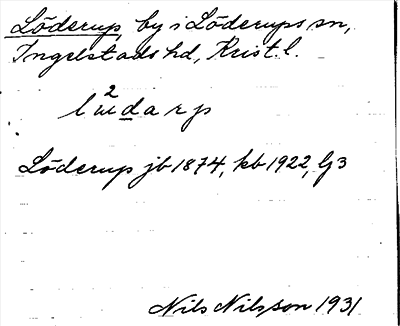 Löderup, by i Löderups sn,
Ingelstads hd, Krist. l.
2
l u d a r p
Löderup jb 1874, kb 1922, lj 3
Nils Nilsson 1931